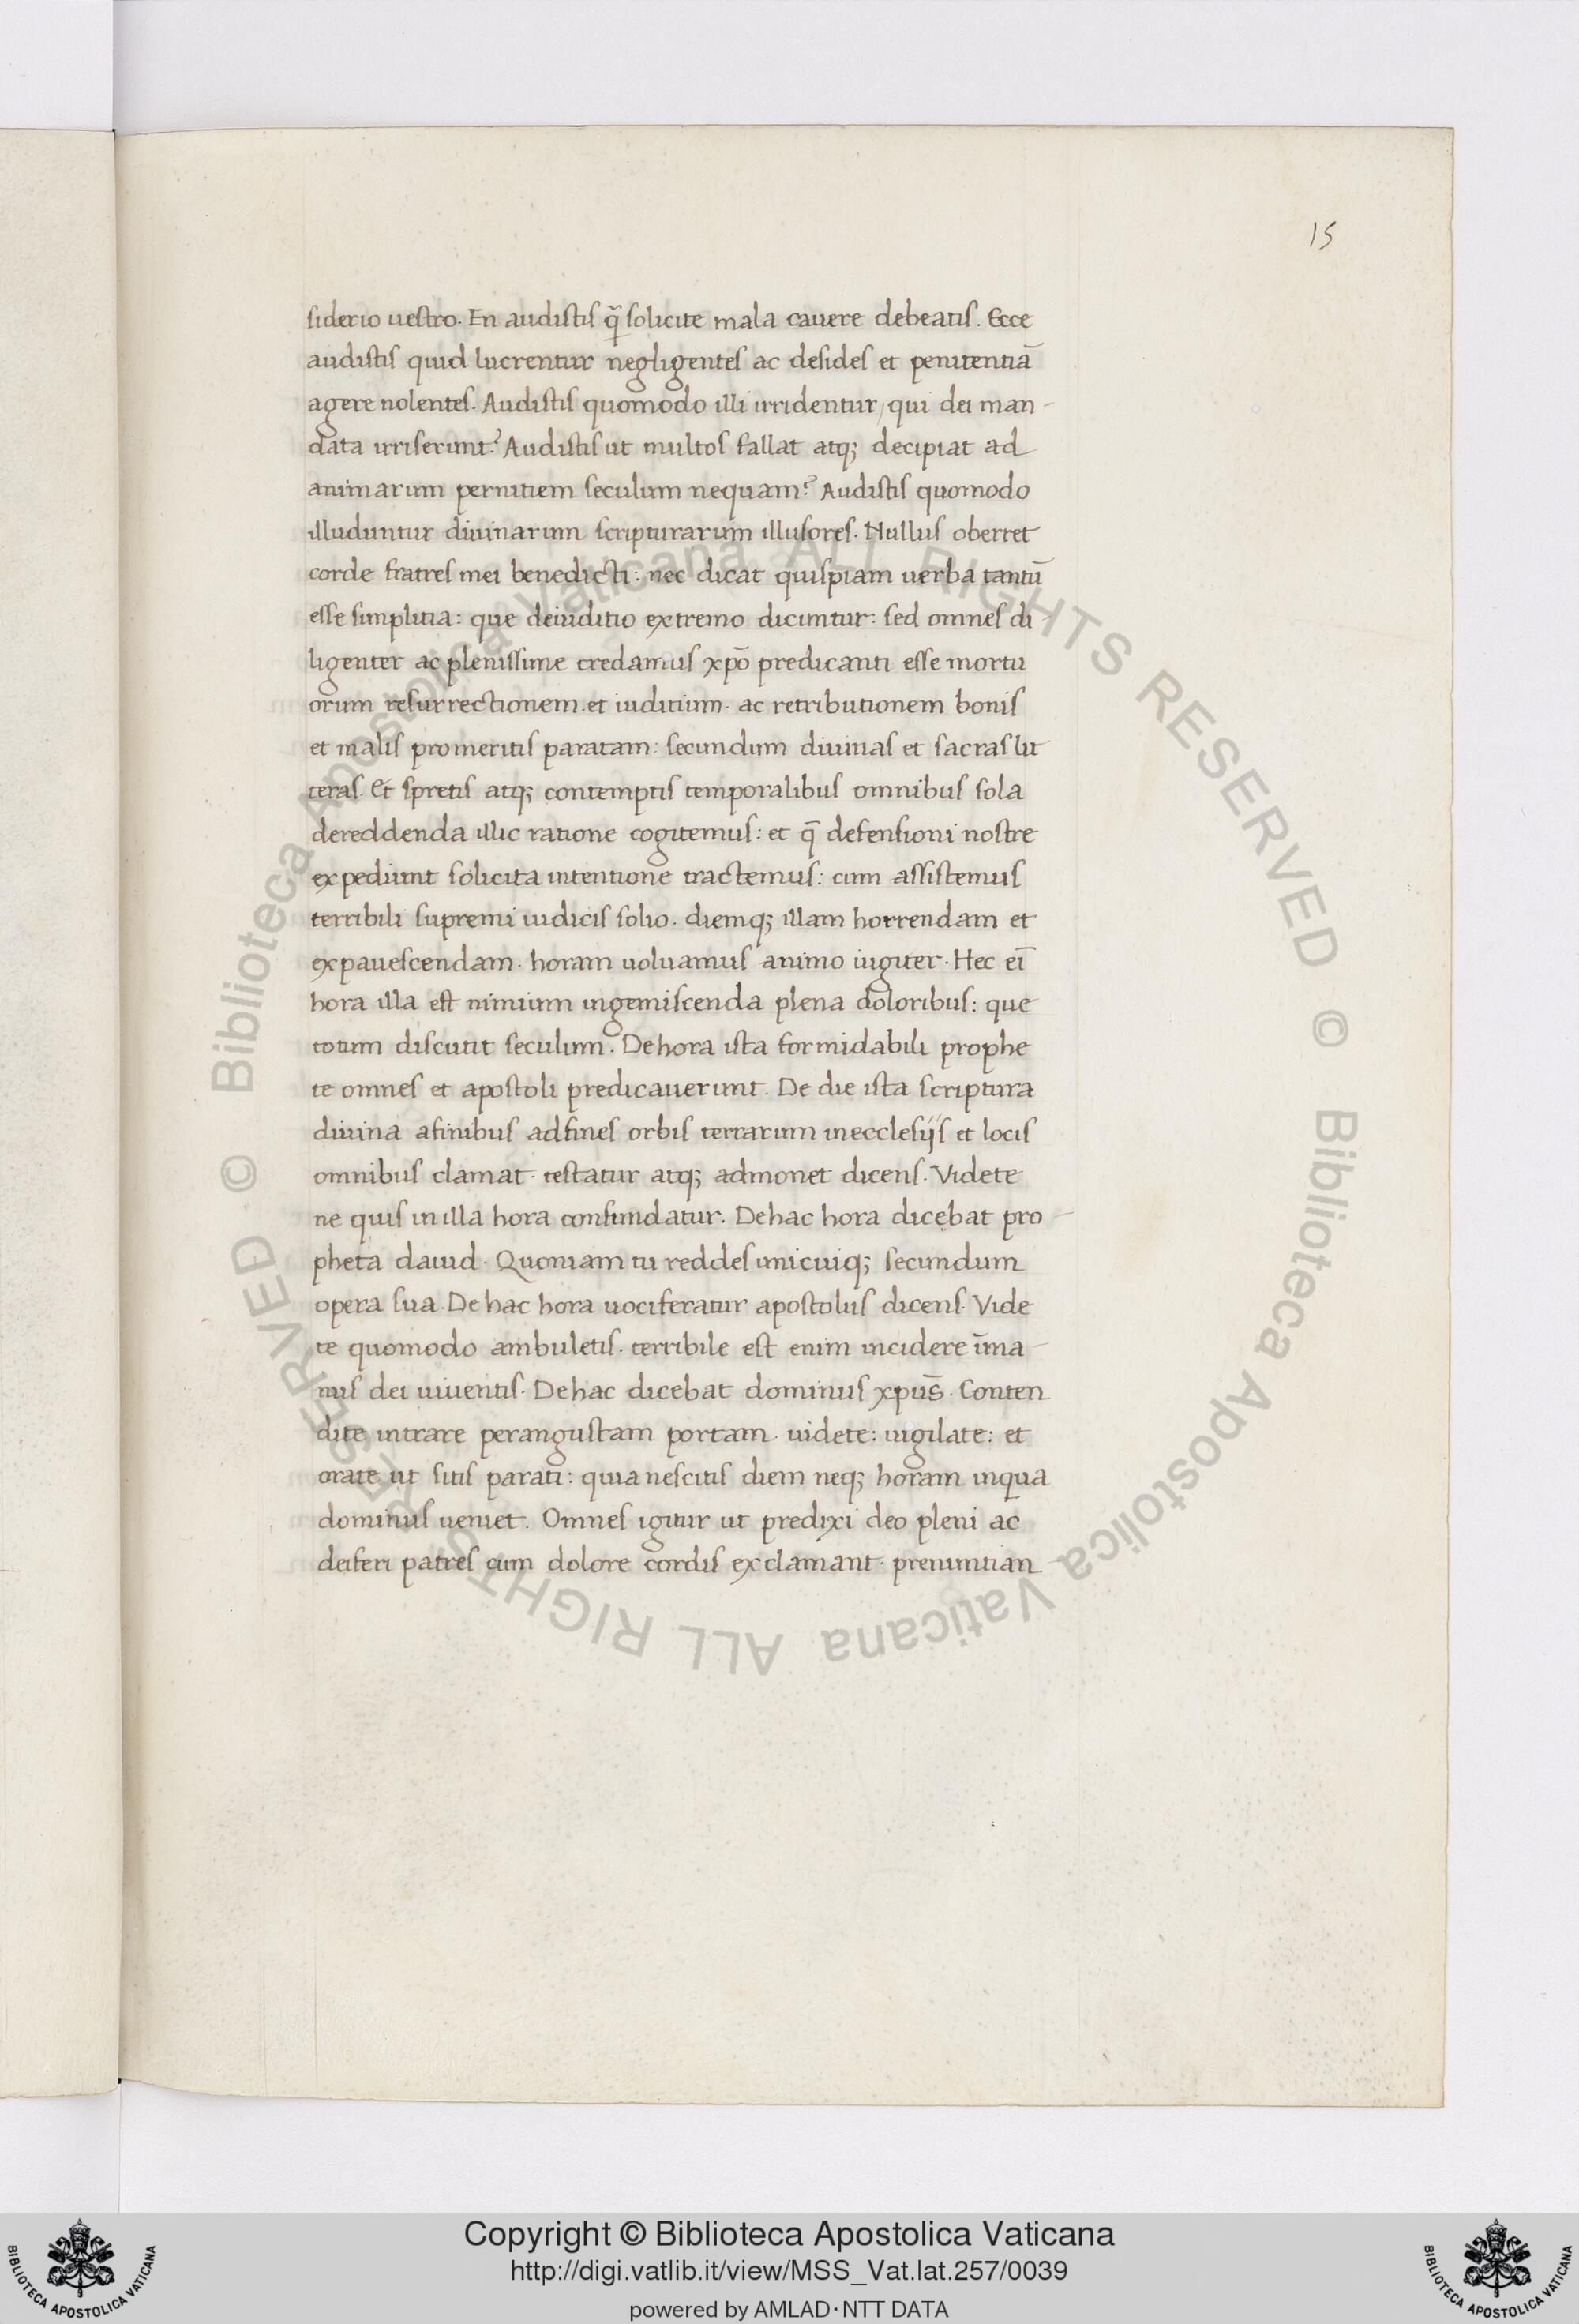 15
siderio uestro. En audistis q̃ solicite mala cauere debeatis. Ecce
audistis quid lucrentur negligentes ac desides et penitentiā
agere nolentes. Audistis quomodo illi irridentur, qui dei man-
data irriserunt? Audistis ut multos fallat atq; decipiat ad
animarum pernitiem seculum nequam? Audistis quomodo
illuduntur diuinarum scripturarum illusores. Nullus oberret
corde fratres mei benedicti: nec dicat quispiam uerba tantū
esse simplitia: que deiuditio extremo dicuntur: sed omnes di
ligenter ac plenissime credamus xp̄o predicanti esse mortu
orum resurrectionem. et iuditium. ac retributionem bonis
et malis pro meritis paratam: secundum diuinas et sacras lit
teras. Et spretis atq; contemptis temporalibus omnibus sola
dereddenda illic ratione cogitemus: et q̄ defensioni nostre
expediunt solicita intentione tractemus: cum assistemus
terribili supremi iudicis solio. diemq; illam horrendam et
expauescendam. horam uoluamus animo iugiter. Hec ei̅
hora illa est nimium ingemiscenda plena doloribus: que
totum discutit seculum. De hora ista formidabili prophe
te omnes et apostoli predicauerunt. De die ista scriptura
diuina afinibus adfines orbis terrarum inecclesijs et locis
omnibus clamat. testatur atq; admonet dicens. Videte
ne quis in illa hora confundatur. De hac hora dicebat pro-
pheta dauid. Quoniam tu reddes unicuiq; secundum
opera sua. De hac hora uociferatur apostolus dicens. Vide
te quomodo ambuletis. terribile est enim incidere ī ma-
nus dei uiuentis. De hac dicebat dominus xpūs. Conten
dite intrare perangustam portam. uidete: uigilate: et
orate. ut sitis parati: quia nescitis diem neq; horam inqua
dominus ueniet. Omnes igitur ut predixi deo pleni ac
deiferi patres cum dolore cordis exclamant. prenuntian-
© Biblioteca Apostolica Vaticana ALL RIGHTS RESERVED © Biblioteca Apostolica Vaticana ALL RIGHTS RESERVED
Copyright © Biblioteca Apostolica Vaticana
http://digi.vatlib.it/view/MSS_Vat.lat.257/0039
powered by AMLAD·NTT DATA
BIBLIOTECA APOSTOLICA VATICANA
BIBLIOTECA APOSTOLICA VATICANA